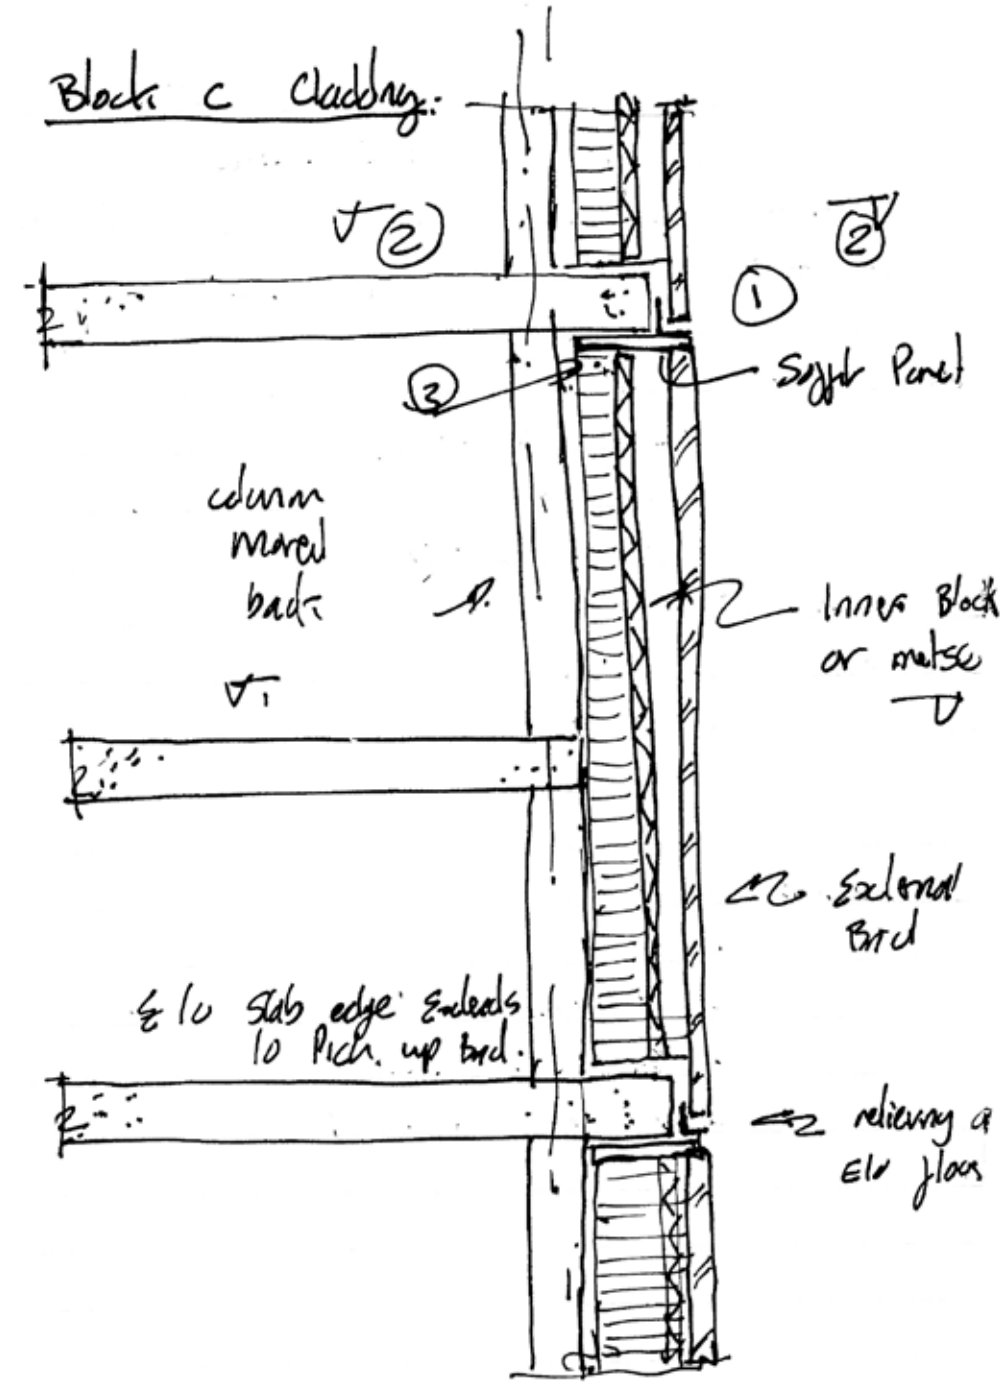 Block C Cladding:
2
2
1
3
Soffit Panel
column
moved
back
Inner Block
or metsec
1
External
Brick
E/O Slab edge Extends
to Pick up Brick.
relieving a
E/O floor